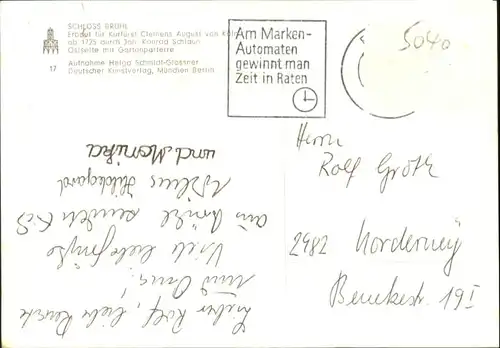 SCHLOSS BRÜHL
Erbaut für Kurfürst Clemens August von Köln
ab 1725 durch Joh. Konrad Schlaun
Ostseite mit Gartenparterre
17
Aufnahme Helga Schmidt-Glassner
Deutscher Kunstverlag, München Berlin
Am Marken-
Automaten
gewinnt man
Zeit in Raten
5040
Herrn
Rolf Groth
2982 Norderney
Benekestr. 19 I
Lieber Rolf, liebe
und Oma!
Viele liebe Grüße
aus Brühl senden
Hildegard
und Monika